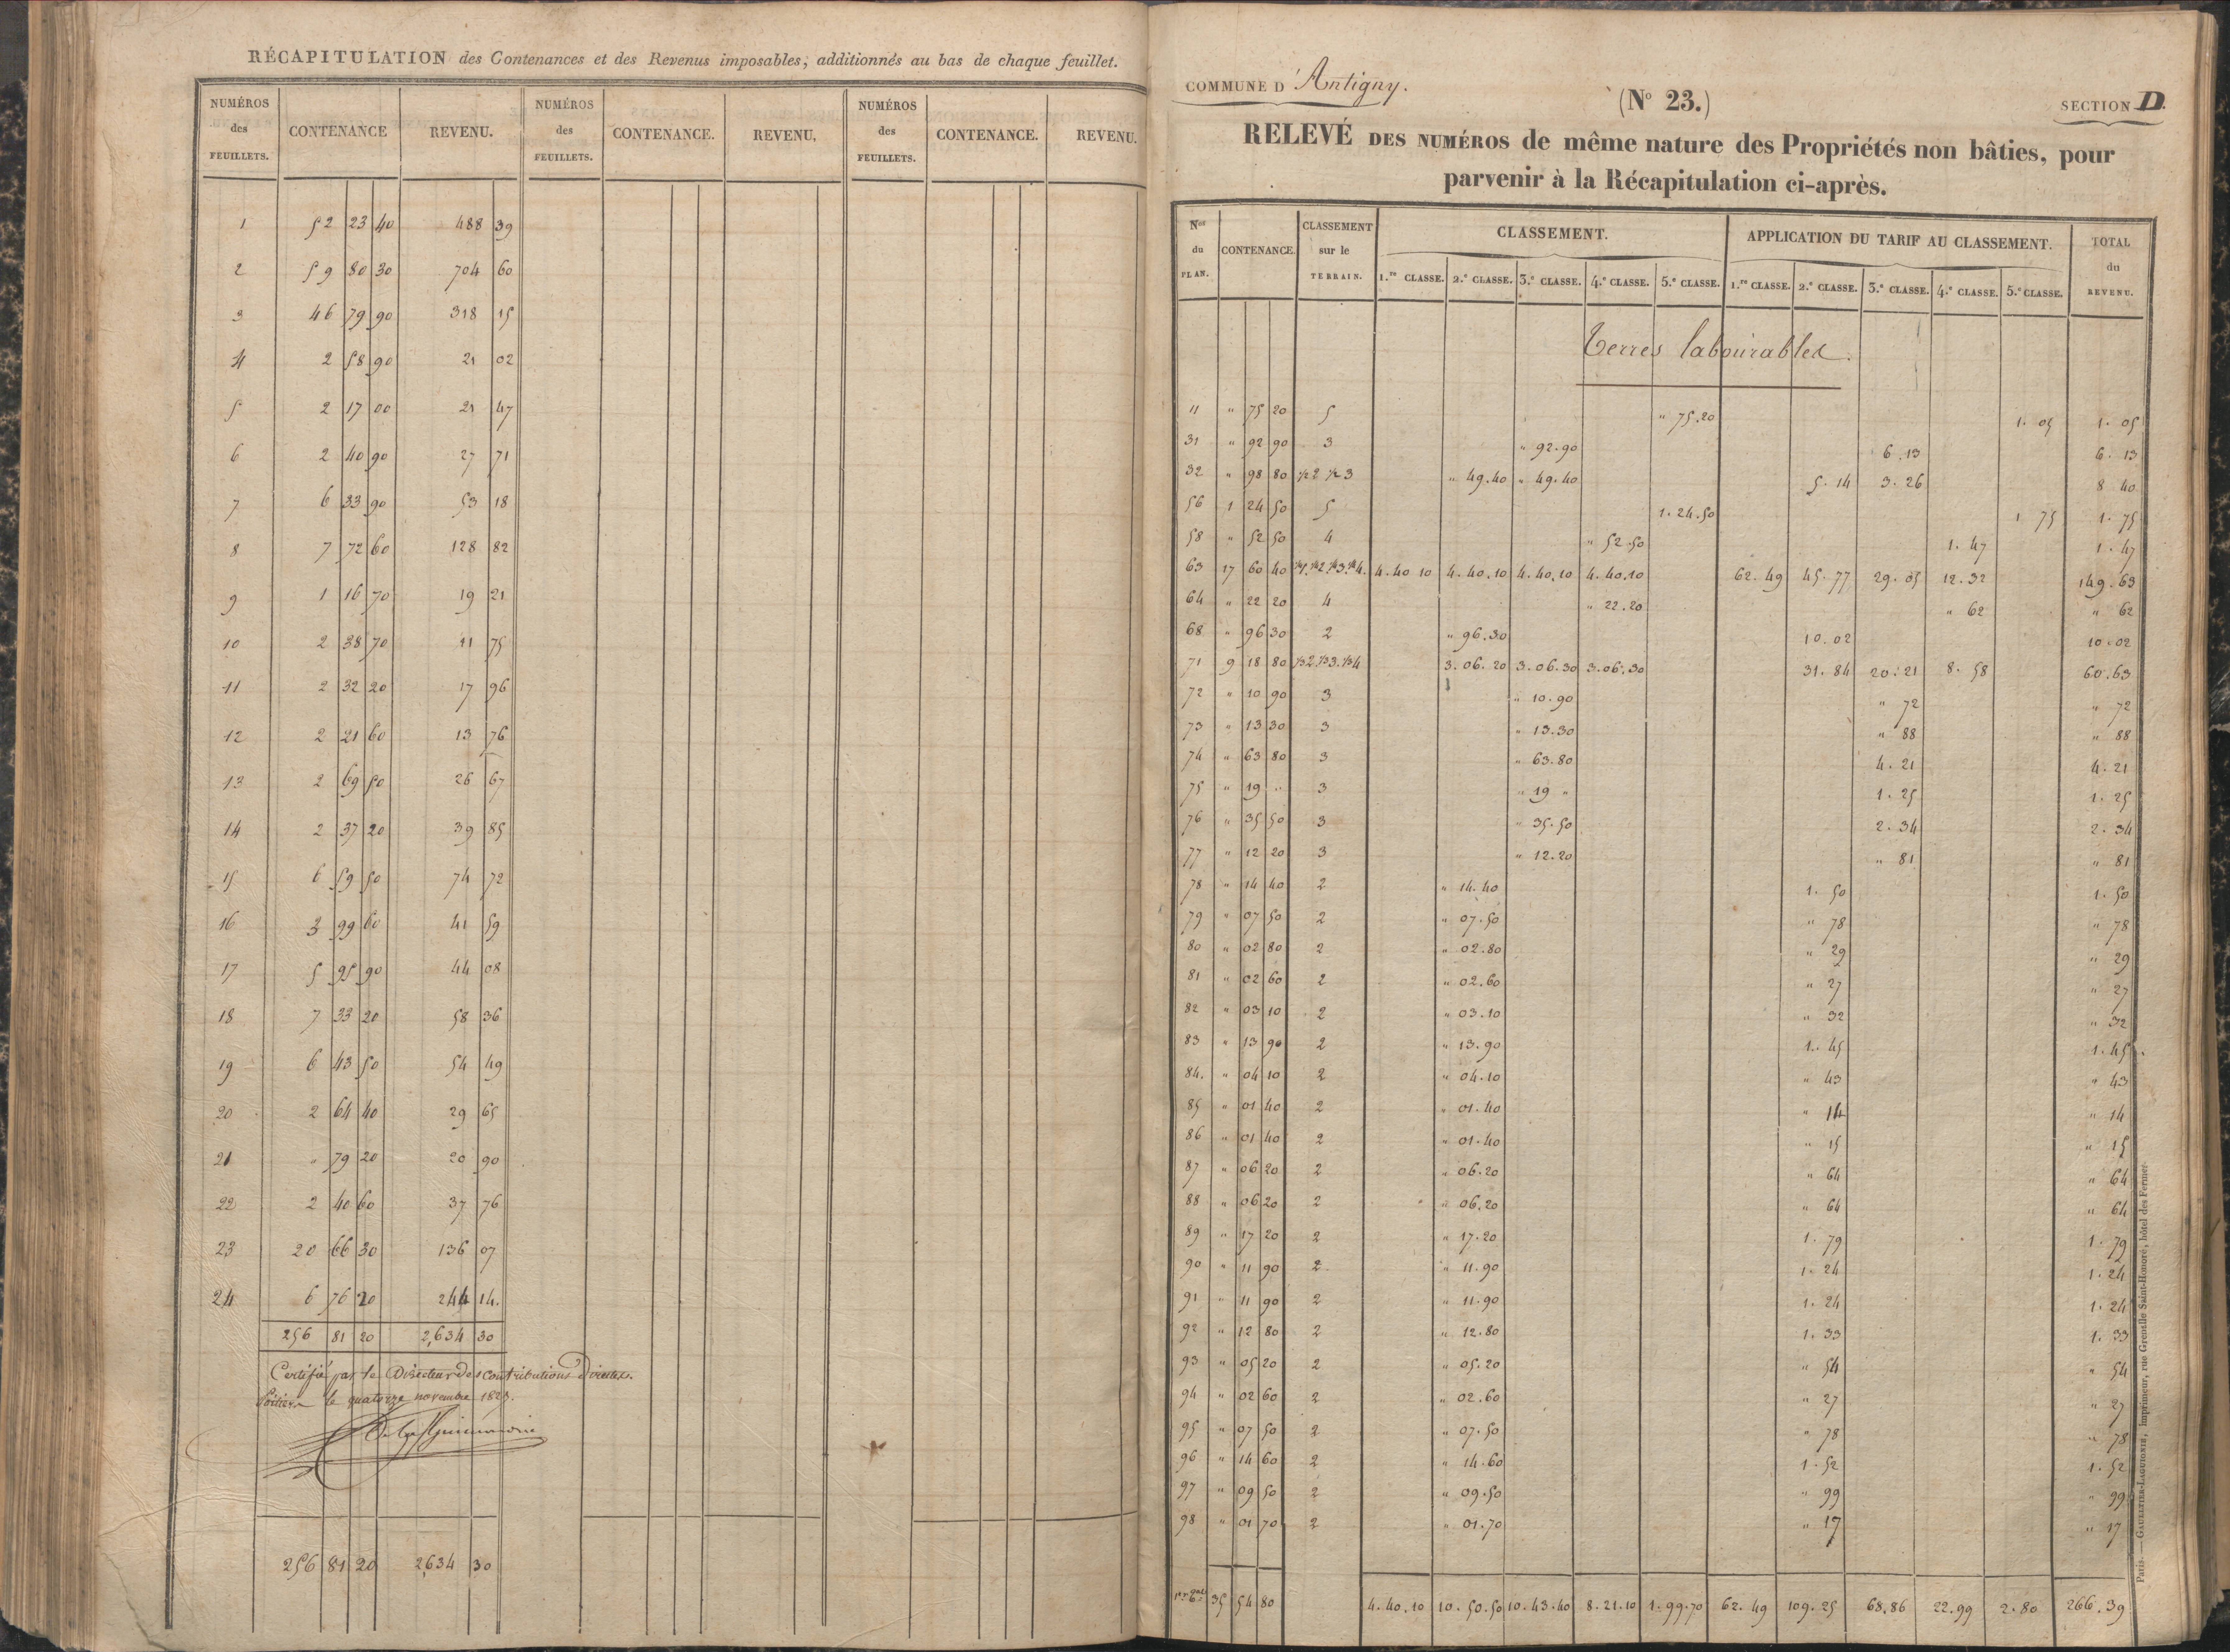 RÉCAPITULATION des Contenances et des Revenus imposables, additionnés au bas de chaque feuillet.
NUMÉROS des FEUILLETS. CONTENANCE REVENU. NUMÉROS des FEUILLETS. CONTENANCE. REVENU, NUMÉROS des FEUILLETS. CONTENANCE. REVENU.
1 52 23 40 488 39
2 59 80 30 704 60
3 46 79 90 318 15
4 2 58 90 21 02
5 2 17 00 21 47
6 2 40 90 27 71
7 6 33 90 53 18
8 7 72 60 128 82
9 1 16 70 19 21
10 2 38 70 11 75
11 2 32 20 17 96
12 2 21 60 13 76
13 2 69 50 26 67
14 2 37 20 39 85
15 6 59 50 74 72
16 3 99 60 41 59
17 5 95 90 44 08
18 7 33 20 58 36
19 6 43 50 54 49
20 2 64 40 29 65
21 " 79 20 20 90
22 2 40 60 37 76
23 20 66 30 136 07
24 6 76 20 244 14.
256 81 20 2,634 30
Certifié par le Directeur des contributions directes.
Poitiers le quatorze novembre 182
256 81 20 2,634 30
COMMUNE D'Antigny.
(No 23.)
SECTION D.
RELEVÉ DES NUMÉROS de même nature des Propriétés non bâties, pour
parvenir à la Récapitulation ci-après.
Nos du PLAN. CONTENANCE. CLASSEMENT sur le TERRAIN. CLASSEMENT. APPLICATION DU TARIF AU CLASSEMENT. TOTAL du REVENU.
1.re CLASSE. 2.e CLASSE. 3.e CLASSE. 4.e CLASSE. 5.e CLASSE. 1.re CLASSE. 2.e CLASSE. 3.e CLASSE. 4.e CLASSE. 5.e CLASSE.
Terres labourables.
11 " 75 20 5 " 75.20 1. 05 1. 05
31 " 92 90 3 " 92.90 6. 13 6. 13
32 " 98 80 1/2 2 1/2 3 " 49.40 " 49.40 5. 14 3. 26 8 40
56 1 24 50 5 1.24.50 1 75 1. 75
58 " 52 50 4 " 52.50 1. 47 1. 47
63 17 60 40 1/4 1. 1/4 2. 1/4 3. 1/4 4. 4.40 10 4.40.10 4.40.10 4.40.10 62. 49 45. 77 29. 05 12. 32 149. 63
64 " 22 20 4 " 22.20 " 62 " 62
68 " 96 30 2 " 96.30 10. 02 10. 02
71 9 18 80 1/3 2. 1/3 3. 1/3 4 3.06.20 3.06.30 3.06.30 31. 84 20. 21 8. 58 60. 63
72 " 10 90 3 " 10.90 " 72 " 72
73 " 13 30 3 " 13.30 " 88 " 88
74 " 63 80 3 " 63.80 4. 21 4. 21
75 " 19 " 3 " 19 " 1. 25 1. 25
76 " 35 50 3 " 35.50 2. 34 2. 34
77 " 12 20 3 " 12.20 " 81 " 81
78 " 14 40 2 " 14.40 1. 50 1. 50
79 " 07 50 2 " 07.50 " 78 " 78
80 " 02 80 2 " 02.80 " 29 " 29
81 " 02 60 2 " 02.60 " 27 " 27
82 " 03 10 2 " 03.10 " 32 " 32
83 " 13 90 2 " 13.90 1. 45 1. 45
84. " 04 10 2 " 04.10 " 43 " 43
85 " 01 40 2 " 01.40 " 14 " 14
86 " 01 40 2 " 01.40 " 15 " 15
87 " 06 20 2 " 06.20 " 64 " 64
88 " 06 20 2 " 06.20 " 64 " 64
89 " 17 20 2 " 17.20 1. 79 1. 79
90 " 11 90 2 " 11.90 1. 24 1. 24
91 " 11 90 2 " 11.90 1. 24 1. 24
92 " 12 80 2 " 12.80 1. 33 1. 33
93 " 05 20 2 " 05.20 " 54 " 54
94 " 02 60 2 " 02.60 " 27 " 27
95 " 07 50 2 " 07.50 " 78 " 78
96 " 14 60 2 " 14.60 1. 52 1. 52
97 " 09 50 2 " 09.50 " 99 " 99
98 " 01 70 2 " 01.70 " 17 " 17
35 54 80 4.40.10 10.50.50 10.43.40 8.21.10 1.99.70 62. 49 109. 25 68. 86 22. 99 2. 80 266. 39
Paris. — GAULTIER-LAGUIONIE, Imprimeur, rue Grenelle Saint-Honoré, hôtel des Fermes.